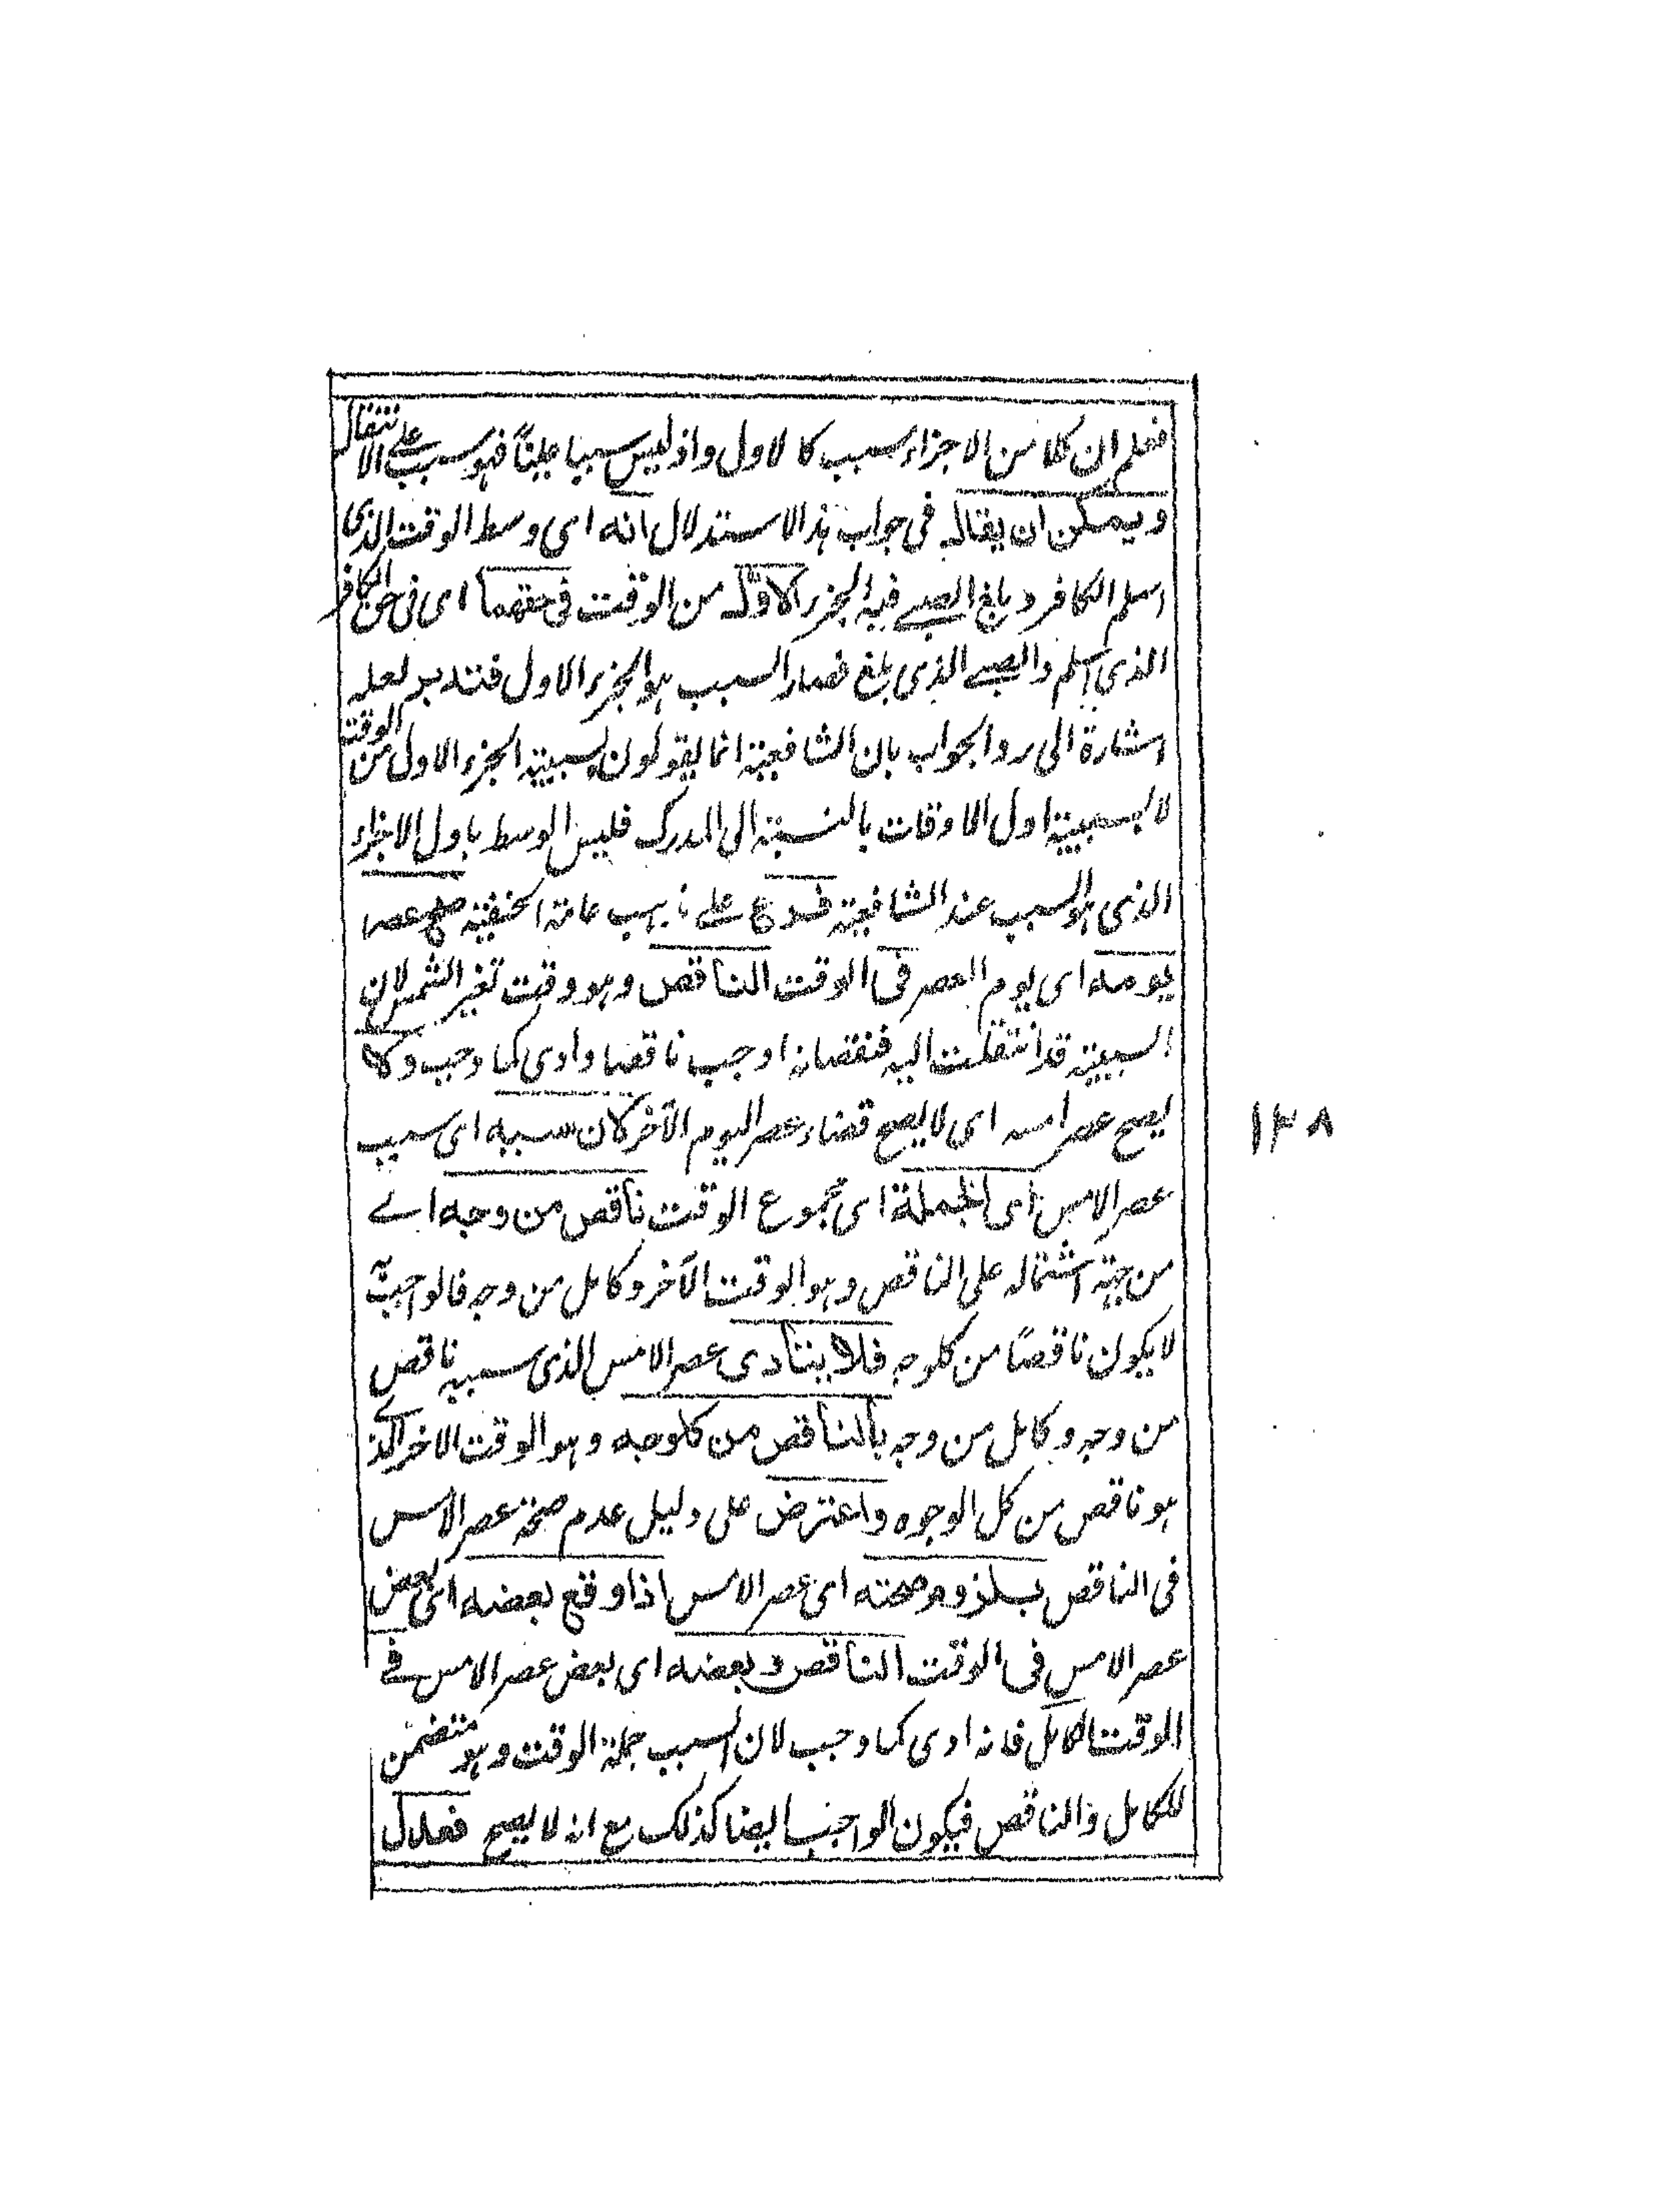 فعلم ان كلا من الاجزاء سبب كالاول واذ ليس سببا علينًا فهو سبب على الانتقال
ويمكن ان يقال فى جواب هذا الاستدلال انه اى وسط الوقت الذى
اسلم الكافر و بلغ الصبے فيه الجزء الاول من الوقت فى حقهما اى فى حق الكافر
الذى اسلم والصبے الذى بلغ فصار السبب هو الجزء الاول فتدبر لعله
اشارة الى رد الجواب بان الشافعية انما يقولون بسببية الجزء الاول من الوقت
لا بسببية اول الاوقات بالنسبة الى المدرك فليس الوسط باول الاجزاء
الذى هو السبب عند الشافعية فروع على مذهب عامة الحنفية صح عصر
يومه اى يوم العصر فى الوقت الناقص وهو وقت تغير الشمس لان
السببية قد انتقلت اليه فنقصانه اوجب ناقصا وادى كما وجب وكلا
يصح عصر امسه اى لا يصح قضاء عصر اليوم الآخر لان سببه اى سبب
عصر الامس اى الجملة اى مجموع الوقت ناقص من وجه اے
من جهة اشتماله على الناقص وهو الوقت الآخر وكامل من وجه فالواجب به
لا يكون ناقصًا من كلوجه فلا يتأدى عصر الامس الذى سببه ناقص
من وجه وكامل من وجه بالناقص من كلوجه وهو الوقت الاخر الذے
هو ناقص من كل الوجوه واعترض على دليل عدم صحة عصر الامس
فى الناقص بلزوم صحته اى عصر الامس اذا وقع بعضه اى بعض
عصر الامس فى الوقت الناقص وبعضه اى بعض عصر الامس فے
الوقت الكامل فانه ادى كما وجب لان السبب جملة الوقت وهو متضمن
للكامل والناقص فيكون الواجب ايضا كذلك مع انه لا يصح فعدل
١٣٨